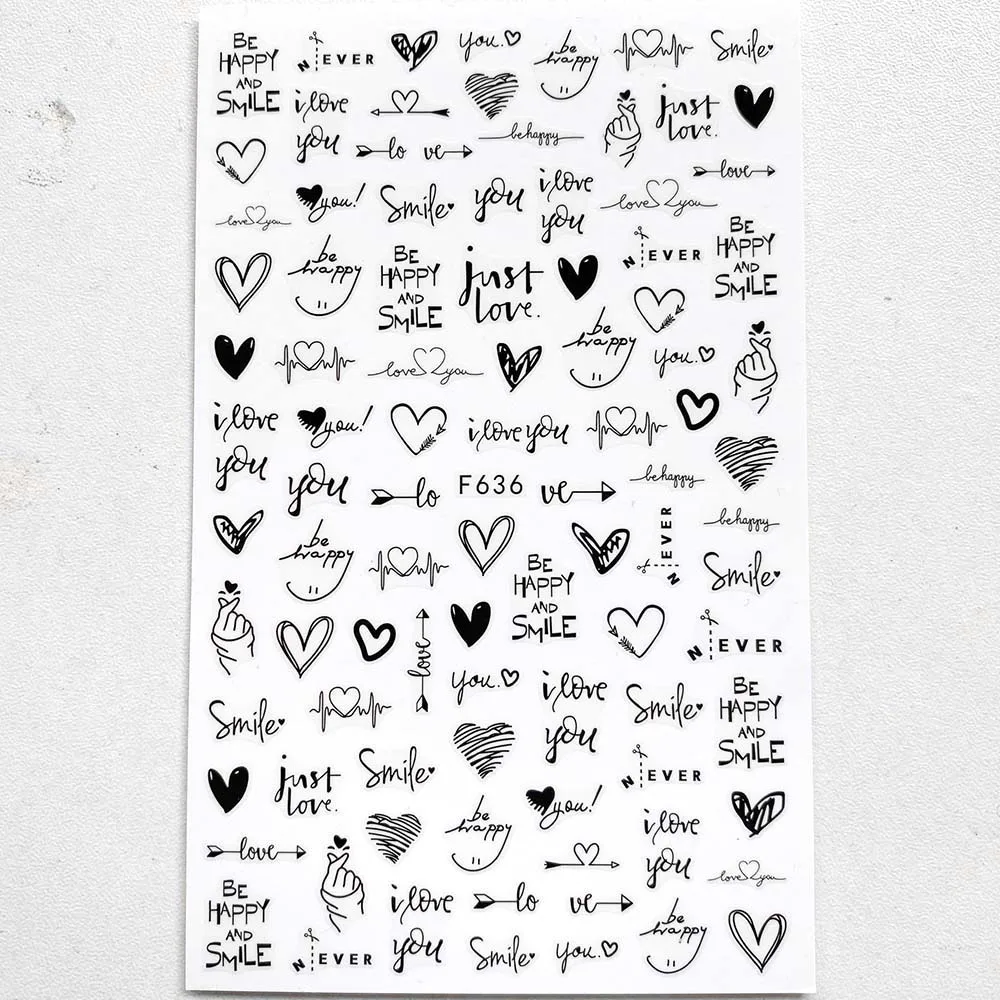 BE
HAPPY
AND
SMILE
NEVER
you.
be
happy
Smile
i love
you
just
love.
be happy
lo ve
love
you!
Smile
you
i love
you
love you
love you
be
happy
BE
HAPPY
AND
SMILE
just
love.
NEVER
BE
HAPPY
AND
SMILE
love you
be
happy
you.
i love
you
you!
i love you
you
lo
F636
ve
be happy
be happy
be
happy
NEVER
Smile
BE
HAPPY
AND
SMILE
love
NEVER
you.
i love
you
Smile
Smile
BE
HAPPY
AND
SMILE
just
love.
Smile
NEVER
you!
be
happy
i love
you
love
love you
BE
HAPPY
AND
SMILE
NEVER
i love
you
lo ve
Smile
you.
be
happy